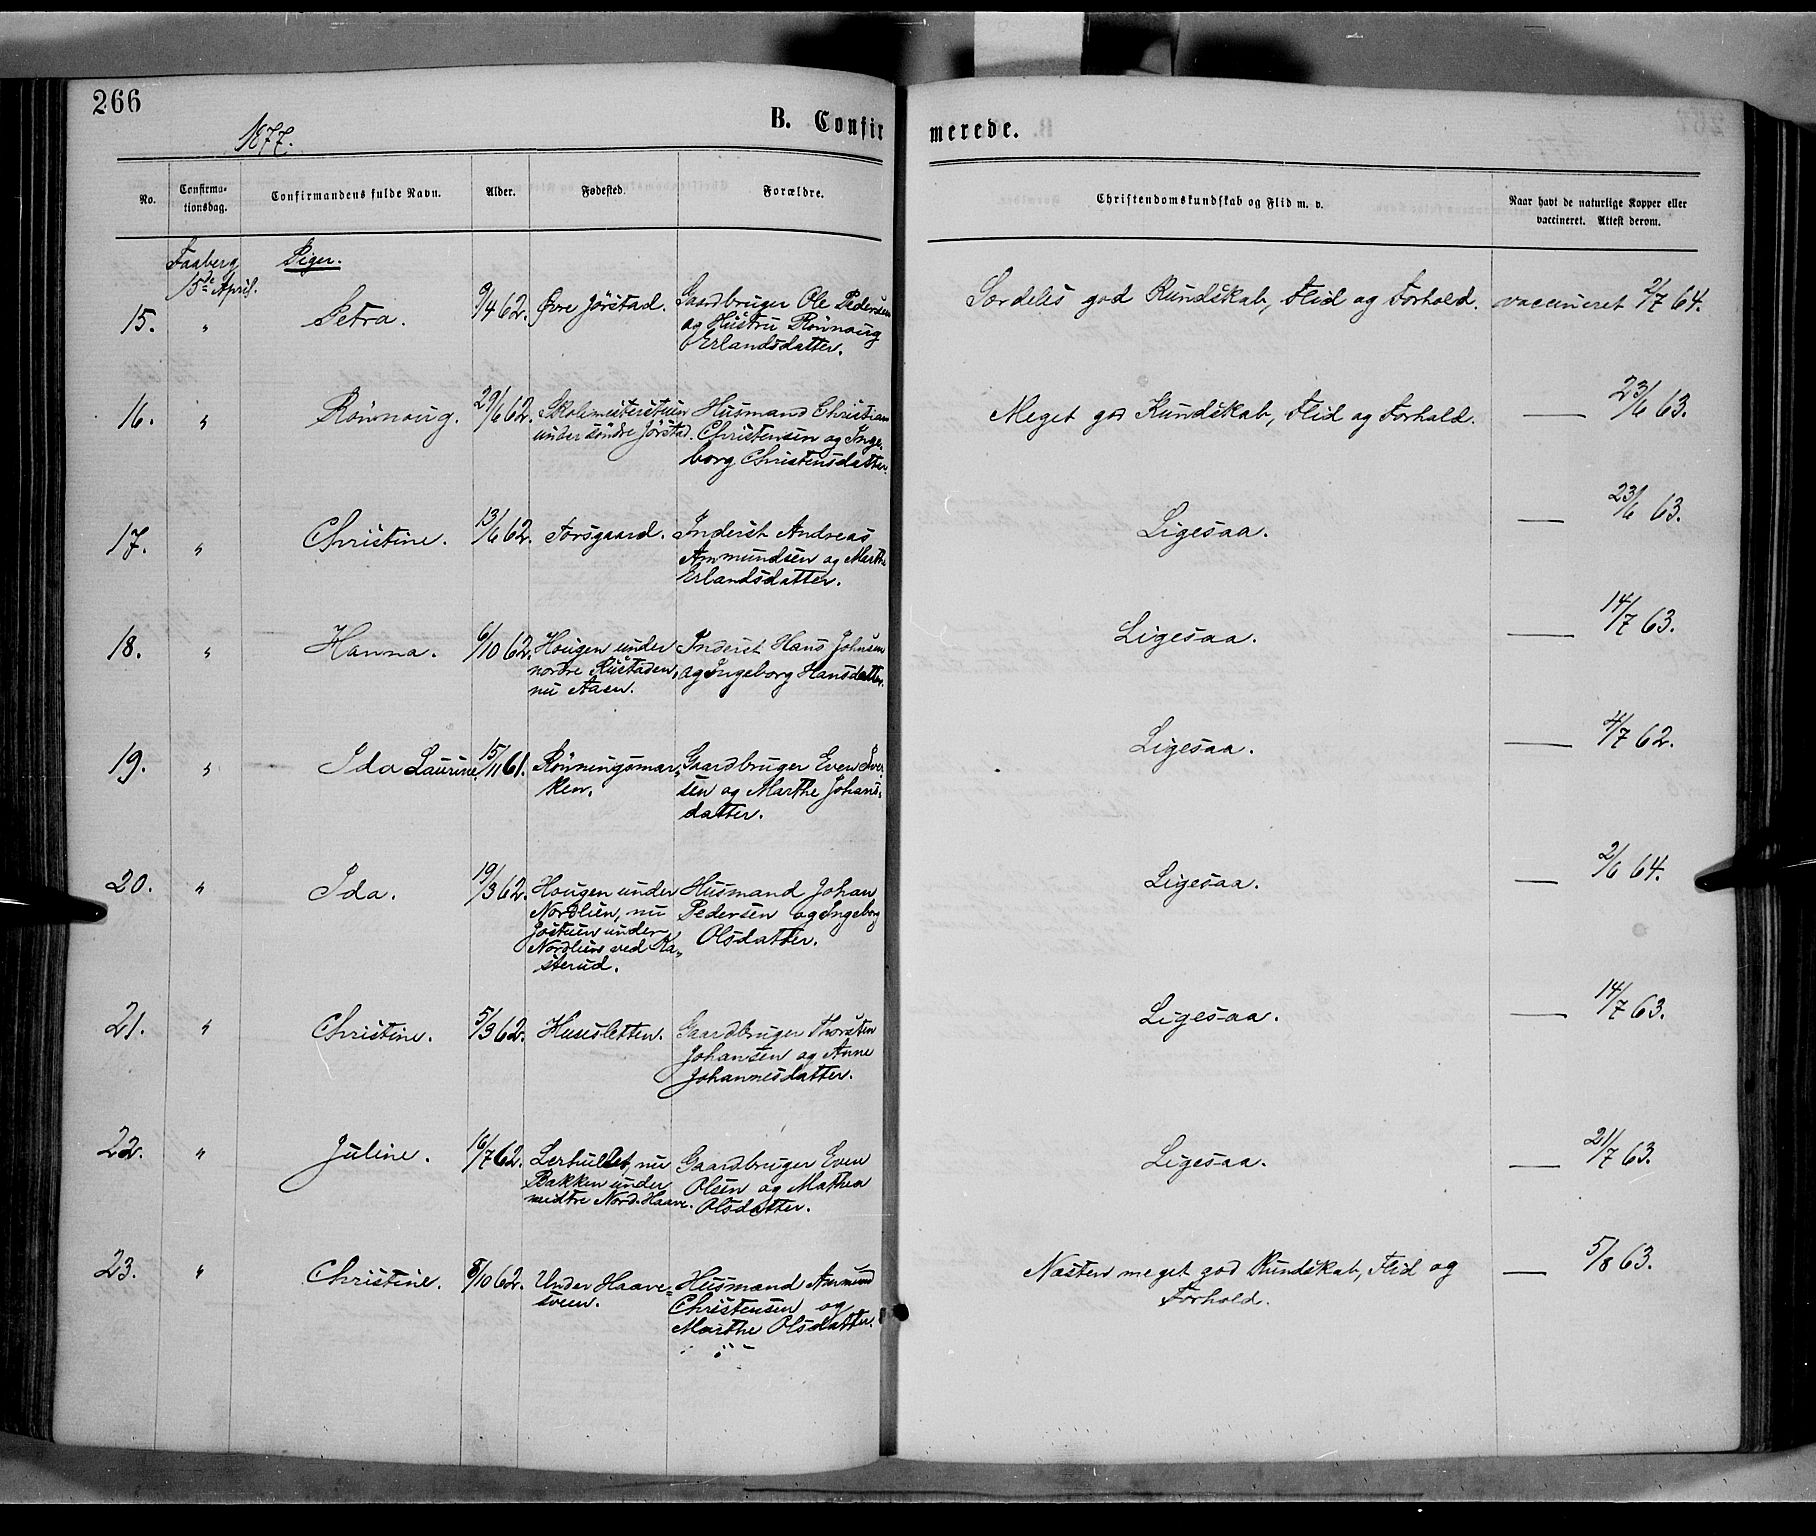 266
1877.
B. Confir
merede.
No.
Confirma-
tionsdag.
Confirmandens fulde Navn.
Alder.
Fødested.
Forældre.
Christendomskundskab og Flid m. v.
Naar havt de naturlige Kopper eller
vaccineret. Attest derom.
Faaberg
15de April.
Piger.
15. " Petra. 9/4 62. Øvre Jørstad. Gaardbruger Ole Pedersen
og Hustru Rønnoug
Erlandsdatter.
Særdeles god Kundskab, Flid og Forhold. vaccineret 2/7 64.
16. " Rønnoug. 29/6 62. Skolemesterstuen Husmand Christian
under søndre Jørstad. Christensen og Inge-
borg Christensdatter.
Meget god Kundskab, Flid og Forhold. — 23/6 63.
17. " Christine. 13/6 62. Forsgaard. Inderst Andreas
Ammundsen og Marthe
Erlandsdatter.
Ligesaa. — 23/6 63.
18. " Hanna. 6/10 62. Hougen under Inderst Hans Johnsen
nordre Rustaden, og Ingeborg Hansdatter.
nu Aaen.
Ligesaa. — 14/7 63.
19. " Ida Laurine. 15/11 61. Rønningsmar- Gaardbruger Even Iver-
ken. sen og Marthe Johans-
datter.
Ligesaa. — 4/7 62.
20. " Ida. 19/3 62. Hougen under Husmand Johan
Nordlien, nu Pedersen og Ingeborg
Jostuen under Olsdatter.
Nordlien ved Ka-
sterud.
Ligesaa. — 2/6 64.
21. " Christine. 5/3 62. Husesletten. Gaardbruger Thorsten
Johansen og Anne
Johannesdatter.
Ligesaa. — 14/7 63.
22. " Juline. 16/7 62. Lerhullet, nu Gaardbruger Even
Bakken under Olsen og Mathea
midtre Nord-Haave. Olsdatter.
Ligesaa. — 21/7 63.
23. " Christine. 8/10 62. Under Haave- Husmand Ammund
sveen. Christensen og
Marthe Olsdatter.
Næsten meget god Kundskab, Flid og — 5/8 63.
Forhold.